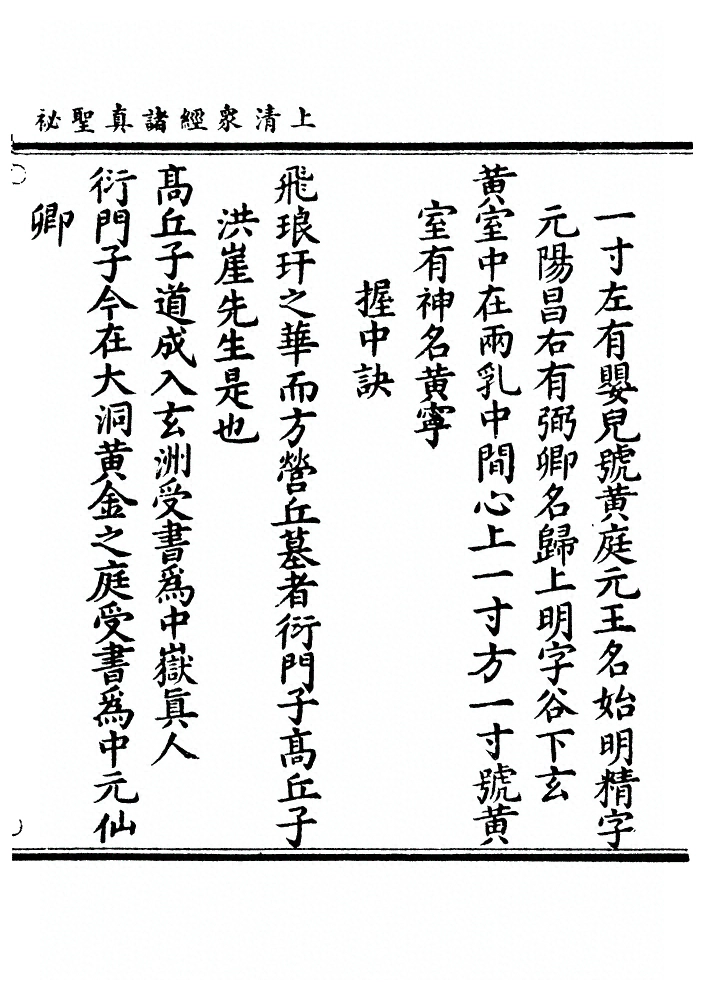 上清衆經諸真聖祕
一寸左有嬰兒號黄庭元王名始明精字
元陽昌右有弼卿名歸上明字谷下玄
黄室中在兩乳中間心上一寸方一寸號黄
室有神名黄寧
握中訣
飛琅玕之華而方營丘墓者衍門子髙丘子
洪崖先生是也
髙丘子道成入玄洲受書爲中嶽眞人
衍門子今在大洞黄金之庭受書爲中元仙
卿